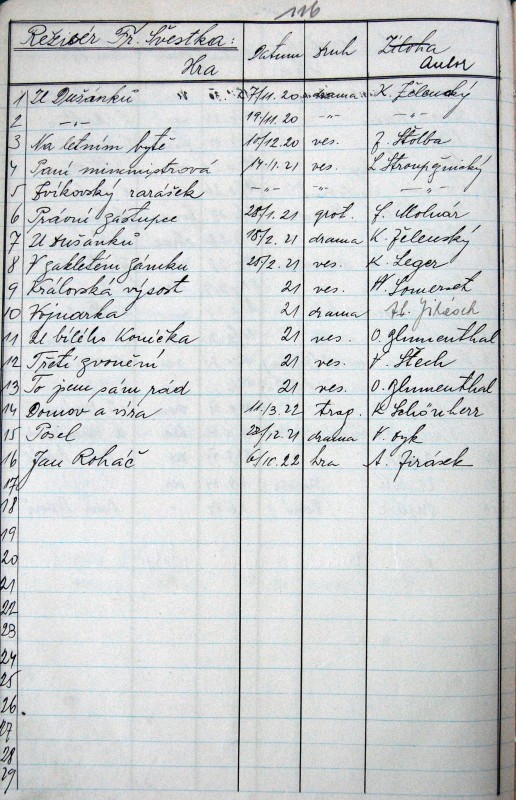 116
Režisér Fr. Švestka: Datum Druh Záloha
Hra Autor
1 U Dušánků 7/11.20 drama K. Želenský
2 -„- 19/11.20 -„- -„-
3 Na letním bytě 15/12.20 ves. J. Štolba
4 Paní minmistrová 14/1.21 ves. L Stroupžnický
5 Zvíkovský rarášek -„- -„- -„-
6 Právní zástupce 28/1.21 grot. f. Molnár
7 U Dušánků 18/2.21 drama K. Želenský
8 V zakletém zámku 25/2.21 ves. K. Leger
9 Královská výsost 21 ves. W Somerset
10 Vojnarka 21 drama Al. Jirásek
11 U bílého koníčka 21 ves. O. Glumenthal
12 Třetí zvonění 21 ves. V. Štech
13 To jsem sám rád 21 ves. O. Glumenthal
14 Domov a víra 11./3.22 trag. K Schönherr
15 Posel 28/12.21 drama V. Dyk
16 Jan Roháč 6/10.22 hra A. Jirásek
17
18
19
20
21
22
23
24
25
26
27
28
29